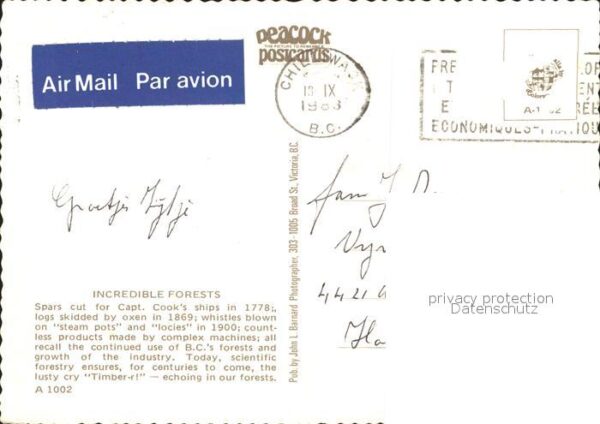 Peacock
THE PICTURE TO REMEMBER
postcards
Air Mail Par avion
CHILLIWACK
13 IX
1983
B.C.
FRE
ECONOMIQUES-PRATIQU
A-1
Groetjes
Pub. by John L. Barnard Photographer, 303-1005 Broad St., Victoria, B.C.
Fam
4421
privacy protection
Datenschutz
INCREDIBLE FORESTS
Spars cut for Capt. Cook's ships in 1778;
logs skidded by oxen in 1869; whistles blown
on "steam pots" and "locies" in 1900; count-
less products made by complex machines; all
recall the continued use of B.C.'s forests and
growth of the industry. Today, scientific
forestry ensures, for centuries to come, the
lusty cry "Timber-r!" — echoing in our forests.
A 1002